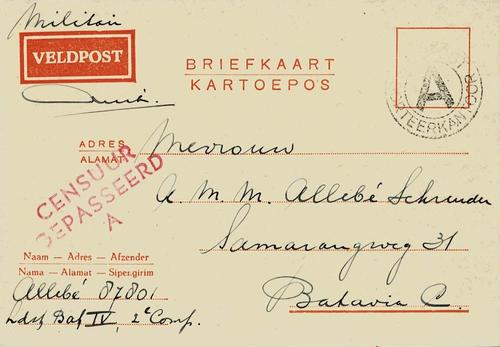 Militair
VELDPOST
BRIEFKAART
KARTOEPOS
A
TEERKANTOOR
ADRES
ALAMAT
Mevrouw
CENSUUR
GEPASSEERD
A
A. M. M. Allebé Schreuder
Samarangweg 31
Batavia C.
Naam — Adres — Afzender
Nama — Alamat — Sipengirim
Allebé 87801
Ldst Bat IV, 2e Comp.